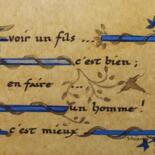 voir un fils ...
c'est bien ;
en faire ...
un homme !
c'est mieux